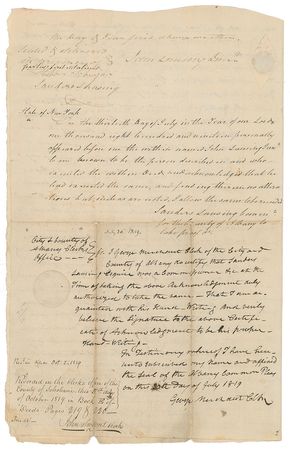 the Day & Year first above written
Sealed & delivered
Sanders Lansing
State of New York
On the thirtieth Day of July in the Year of our Lord
one thousand eight hundred and nineteen personally
appeared before me the within named John Lansing Jun^r
to me known to be the person described in and who
executed the within Deed and acknowledged that he
had executed the same, and finding therein no altera
tions but such as are noted, I allow the same to be recorded
Sanders Lansing Comm^r
to
take proof &c
July 30 1819.
City & County of
Albany Clerk's
Office
I George Merchant Clerk of the City and
County of Albany do certify that Sanders
Lansing Esquire was a Commissioner &c at the
Time of taking the above Acknowledgment duly
authorized to take the same - That I am ac
quainted with his Hand Writing and verily
believe the Signature to the above Certifi
cate of Acknowledgment to be his proper
Hand Writing -
In Testimony whereof I have here
unto subscribed my Name and affixed
the Seal of the Albany Common Pleas
on this 30th Day of July 1819
George Merchant Clk
Oct. 2. 1819
Recorded in the Clerk's office of the
County of
of October 1819 in Book
Deeds Pages 219 & 220